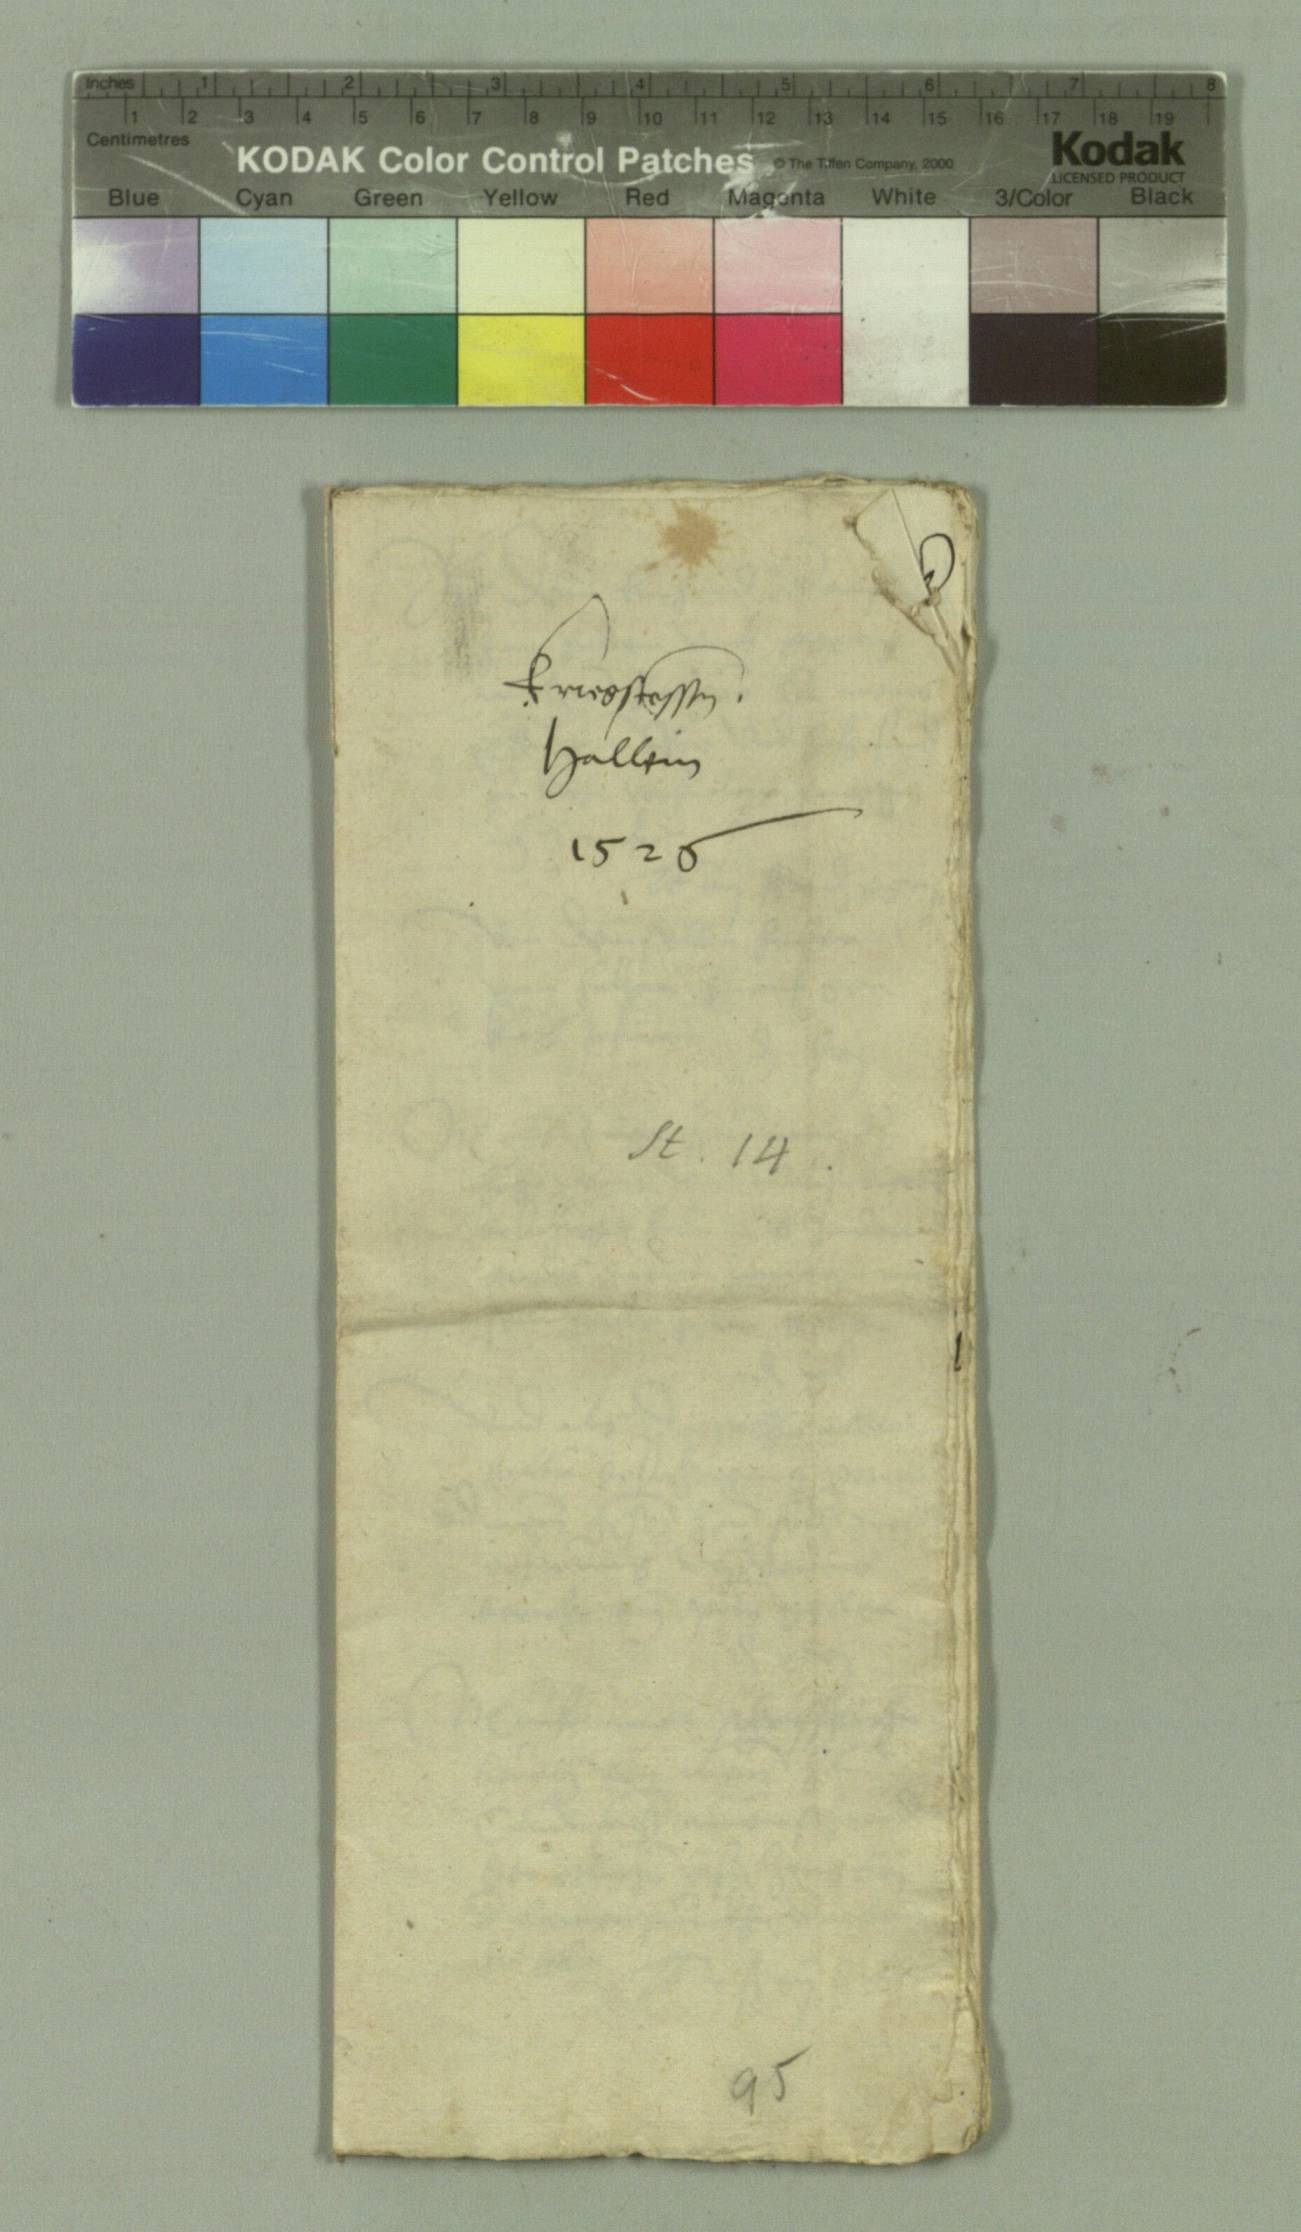 Inches 1 2 3 4 5 6 7 8
1 2 3 4 5 6 7 8 9 10 11 12 13 14 15 16 17 18 19
Centimetres
KODAK Color Control Patches © The Tiffen Company, 2000 Kodak
LICENSED PRODUCT
Blue Cyan Green Yellow Red Magenta White 3/Color Black
Hallein
1526
St. 14.
95